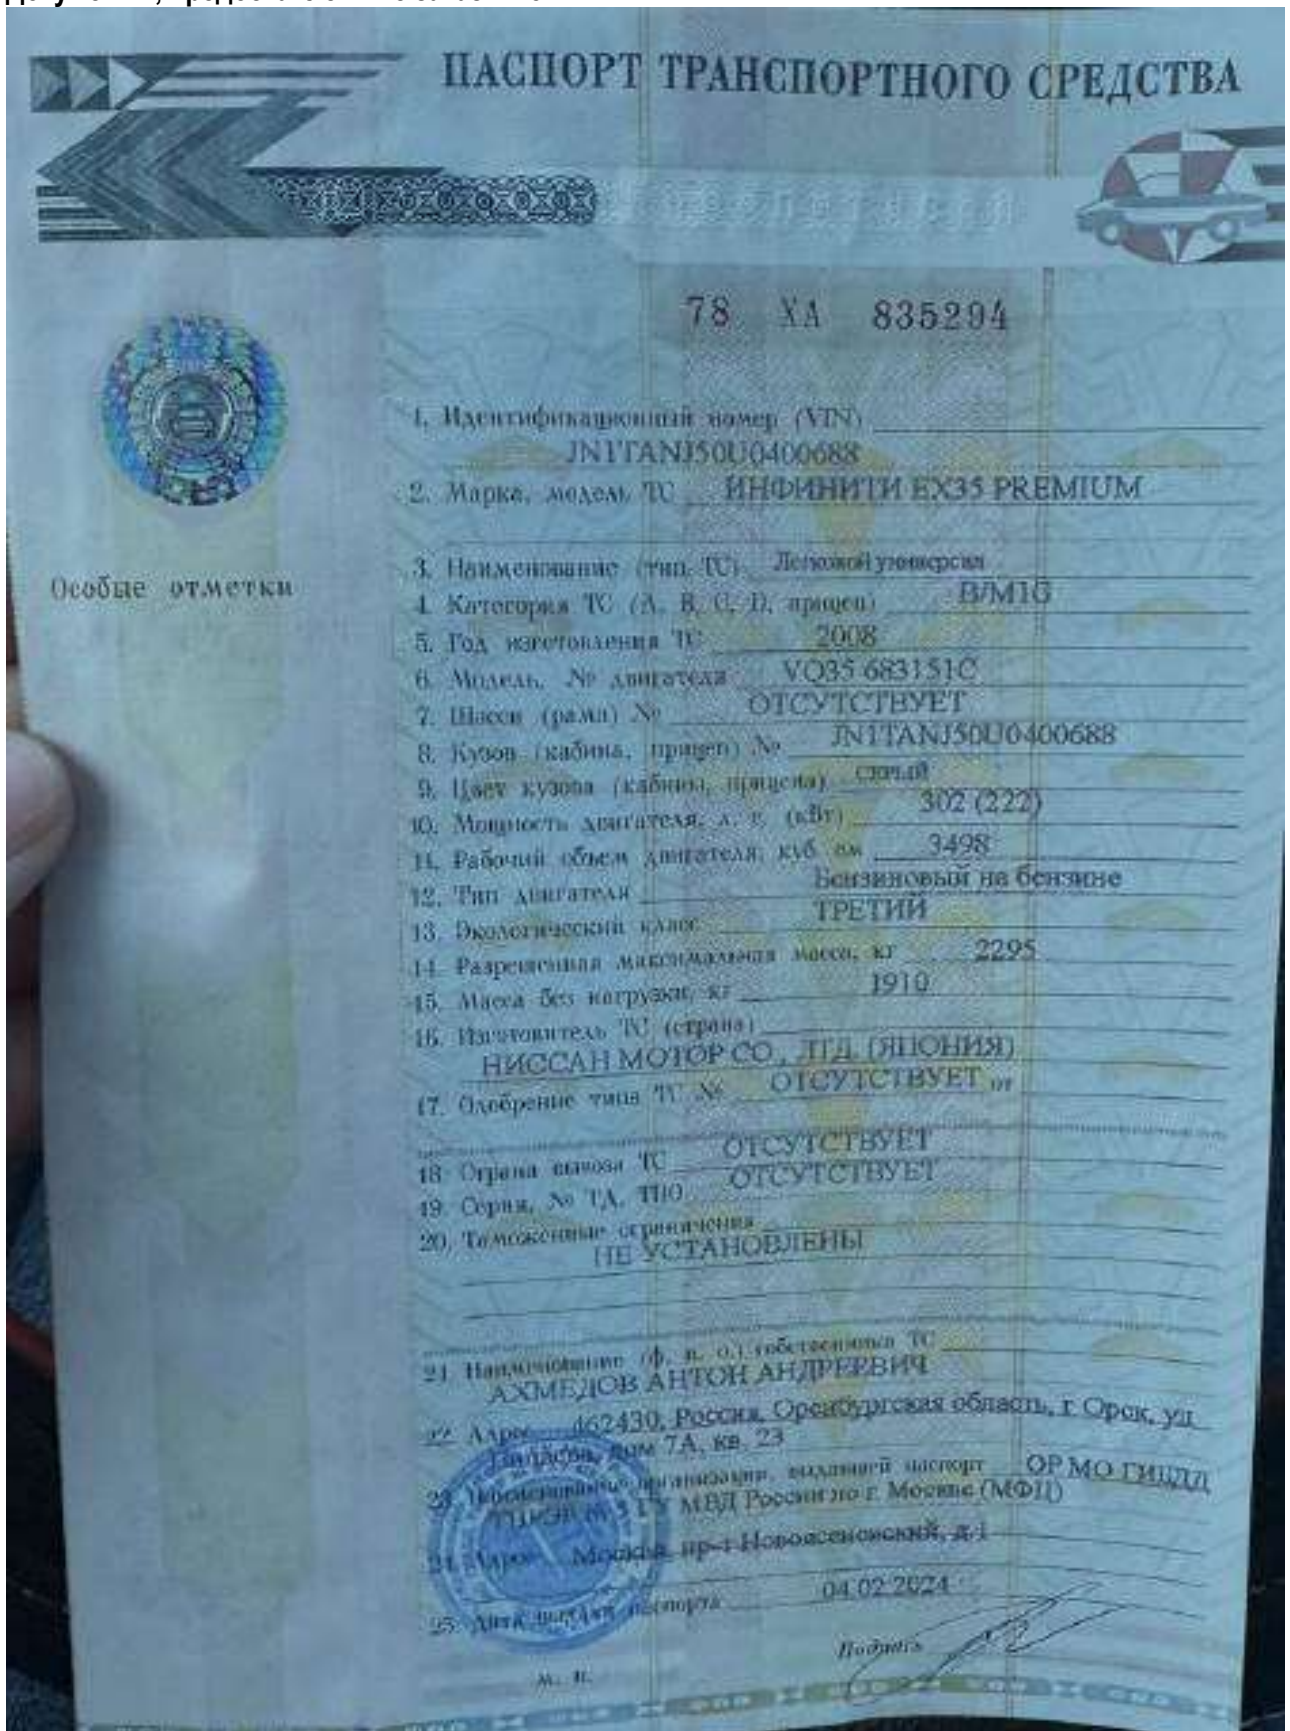 ПАСПОРТ ТРАНСПОРТНОГО СРЕДСТВА
78 ХА 835294
Особые отметки
1. Идентификационный номер (VIN)
JN1TANJ50U0400688
2. Марка, модель ТС ИНФИНИТИ EX35 PREMIUM
3. Наименование (тип ТС) Легковой универсал
4. Категория ТС (A, B, C, D, прицеп) B/M1G
5. Год изготовления ТС 2008
6. Модель, № двигателя VQ35 683151C
7. Шасси (рама) № ОТСУТСТВУЕТ
8. Кузов (кабина, прицеп) № JN1TANJ50U0400688
9. Цвет кузова (кабины, прицепа) серый
10. Мощность двигателя, л. с. (кВт) 302 (222)
11. Рабочий объем двигателя, куб. см 3498
12. Тип двигателя Бензиновый на бензине
13. Экологический класс ТРЕТИЙ
14. Разрешенная максимальная масса, кг 2295
15. Масса без нагрузки, кг 1910
16. Изготовитель ТС (страна)
НИССАН МОТОР СО., ЛТД. (ЯПОНИЯ)
17. Одобрение типа ТС № ОТСУТСТВУЕТ от
18. Страна вывоза ТС ОТСУТСТВУЕТ
19. Серия, № ТД, ТПО ОТСУТСТВУЕТ
20. Таможенные ограничения
НЕ УСТАНОВЛЕНЫ
21. Наименование (ф. и. о.) собственника ТС
АХМЕДОВ АНТОН АНДРЕЕВИЧ
22. Адрес 462430, Россия, Оренбургская область, г. Орск, ул.
дом 7А, кв. 23
23. Наименование организации, выдавшей паспорт ОР МО ГИБДД
ТНРЭР № ГУ МВД России по г. Москве (МФЦ)
24. Адрес Москва, пр-т Новоясеневский, д.1
25. Дата выдачи паспорта 04.02.2024
Подпись
м. п.